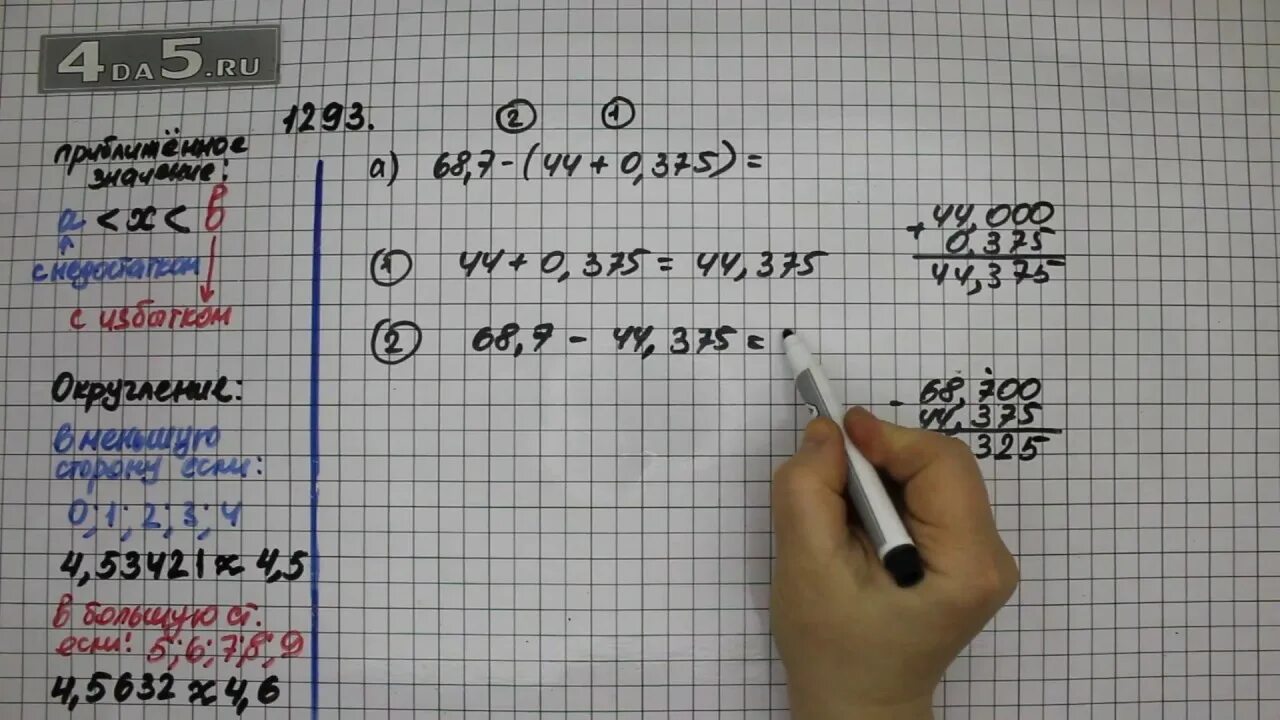 4DA5.RU
1293.
приближённое
значение:
a < x < b
с недостатком
с избытком
Округление:
в меньшую
сторону если:
0; 1; 2; 3; 4
4,53421 ≈ 4,5
в большую ст.
если: 5; 6; 7; 8; 9
4,5632 ≈ 4,6
② ①
а) 68,7 - (44 + 0,375) =
① 44 + 0,375 = 44,375
② 68,7 - 44,375 =
44,000
+ 0,375
44,375
68,700
- 44,375
325